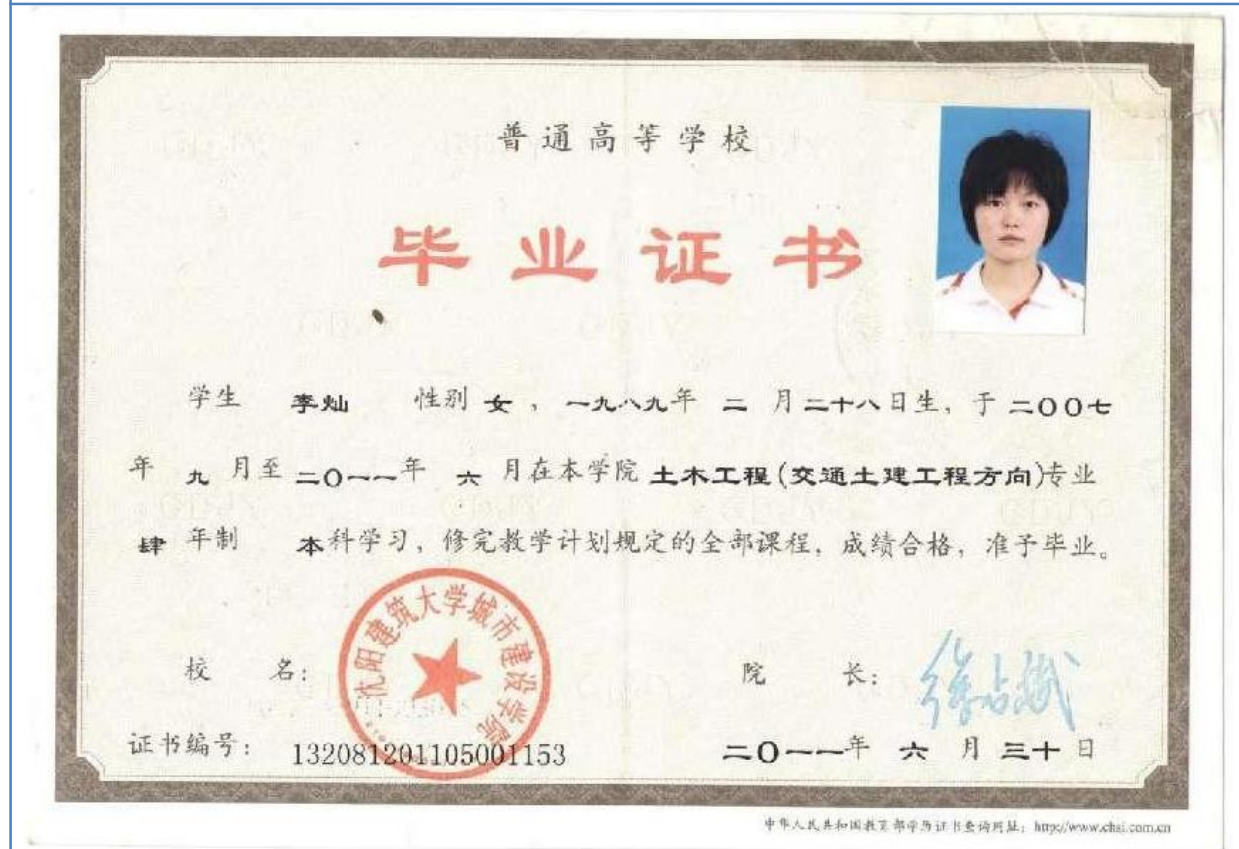 普通高等学校
毕业证书
学生 李灿 性别 女 ，一九八九年 二 月二十八日生，于二〇〇七
年 九 月至 二〇一一年 六 月在本学院 土木工程(交通土建工程方向)专业
肆 年制 本科学习，修完教学计划规定的全部课程，成绩合格，准予毕业。
沈阳建筑大学城市建设学院
校 名： 院 长：
证书编号： 132081201105001153 二〇一一年 六 月 三十 日
中华人民共和国教育部学历证书查询网址：http://www.chsi.com.cn